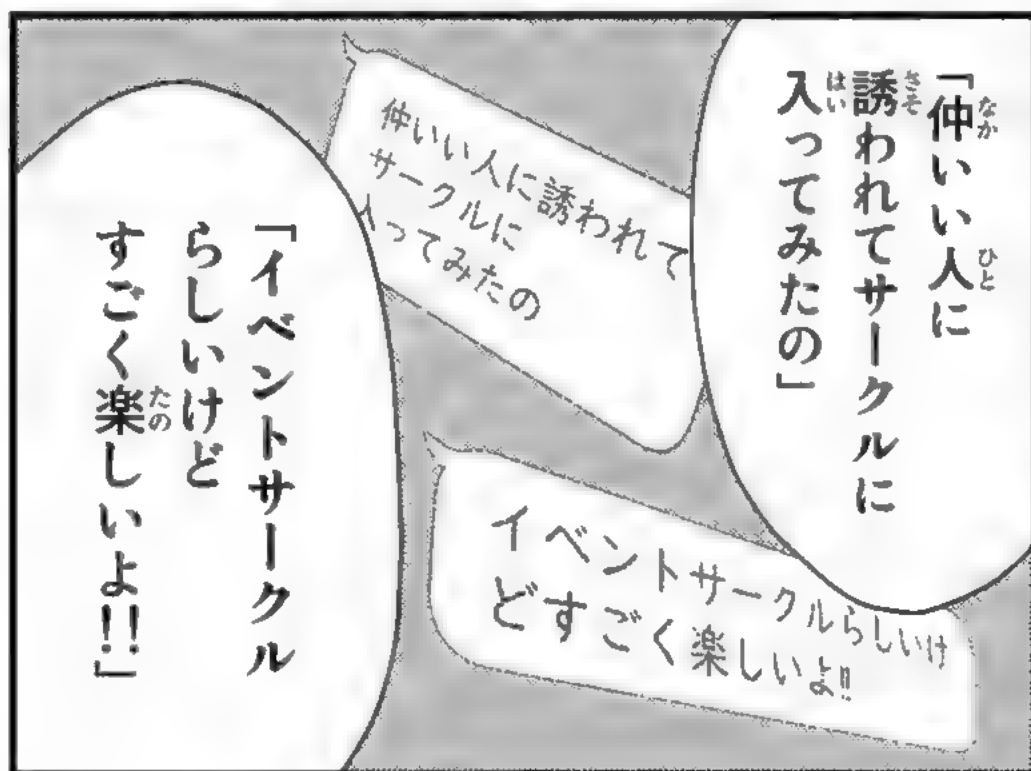 「仲いい人に
誘われてサークルに
入ってみたの」
仲いい人に誘われて
サークルに
入ってみたの
イベントサークルらしいけ
どすごく楽しいよ!!
「イベントサークル
らしいけど
すごく楽しいよ!!」